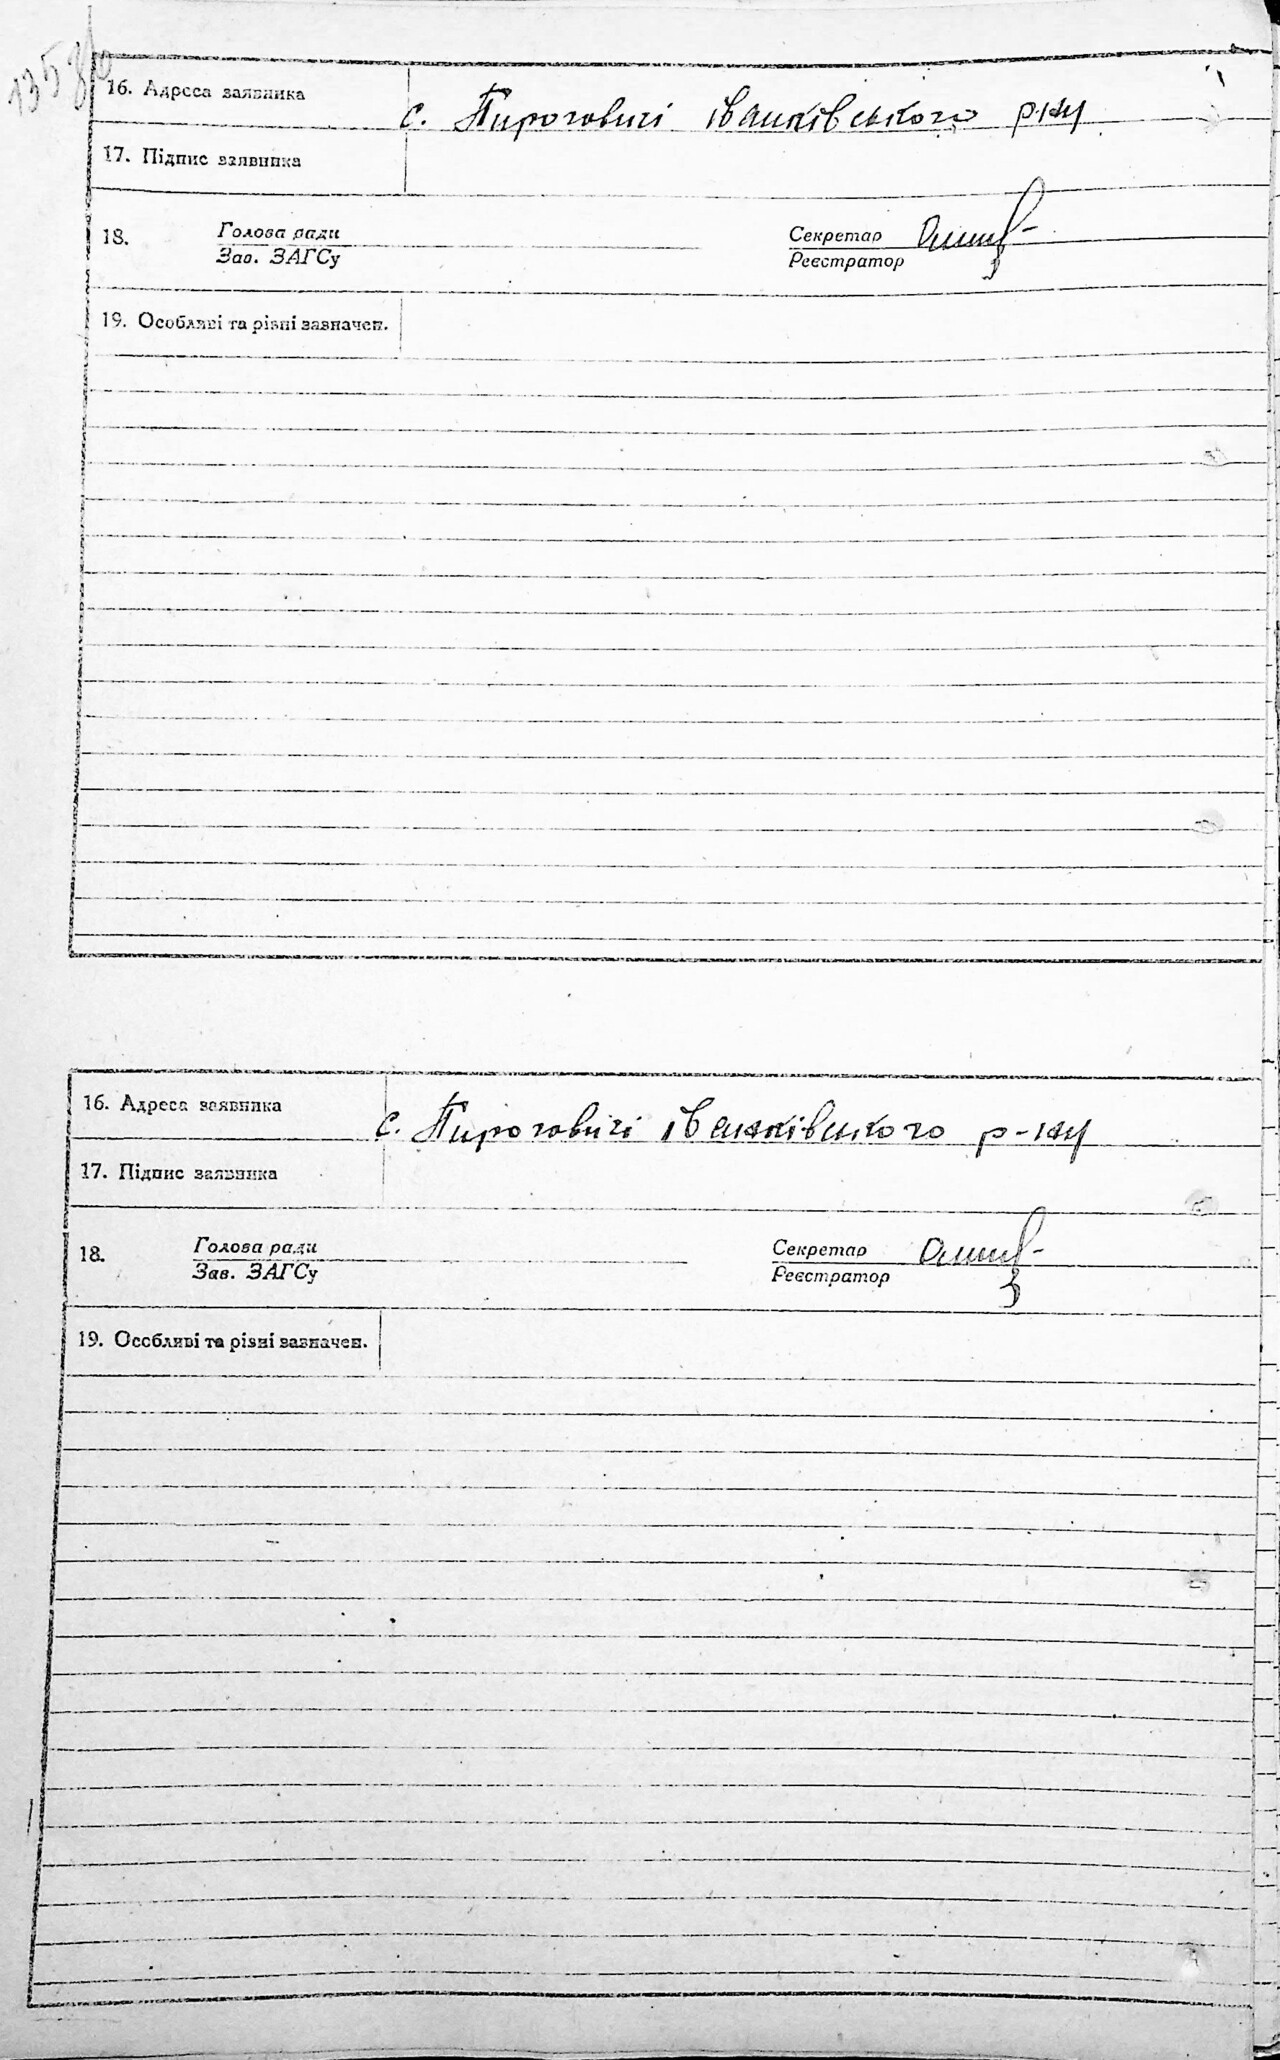 135зв
16. Адреса заявника с. Пироговичі Іванківського р-ну
17. Підпис заявника
18. Голова ради Секретар
Зав. ЗАГСу Реєстратор
19. Особливі та різні зазначен.
16. Адреса заявника с. Пироговичі Іванківського р-ну
17. Підпис заявника
18. Голова ради Секретар
Зав. ЗАГСу Реєстратор
19. Особливі та різні зазначен.